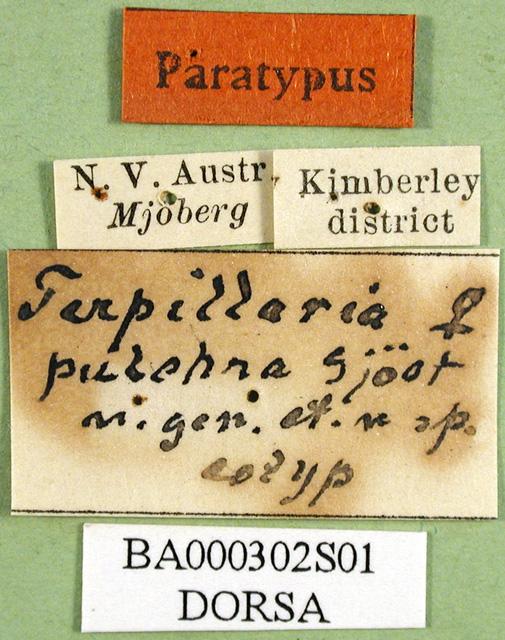 Paratypus
N. V. Austr.
Mjöberg
Kimberley
district
Terpillaria ♀
pulchra Sjöst
n. gen. et. n sp.
cotyp
BA000302S01
DORSA